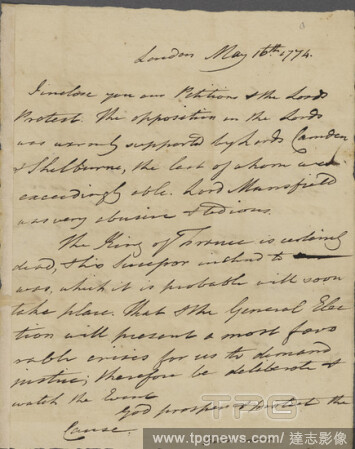 London May 16th 1774.
I inclose you our Petitions & the Lords
Protest. The opposition in the Lords
was warmly supported by Lords Camden
& Shelburne, the last of whom was
exceedingly able. Lord Mansfield
was very abusive & tedious.
The King of France is certainly
dead, & his Successor inclined to
war, which it is probable will soon
take place. That & the General Elec
tion will present a most favo
rable crisis for us to demand
justice; therefore be deliberate &
watch the Event
God prosper & protect the
Cause.
TPG
www.tpgnews.com / 達志影像